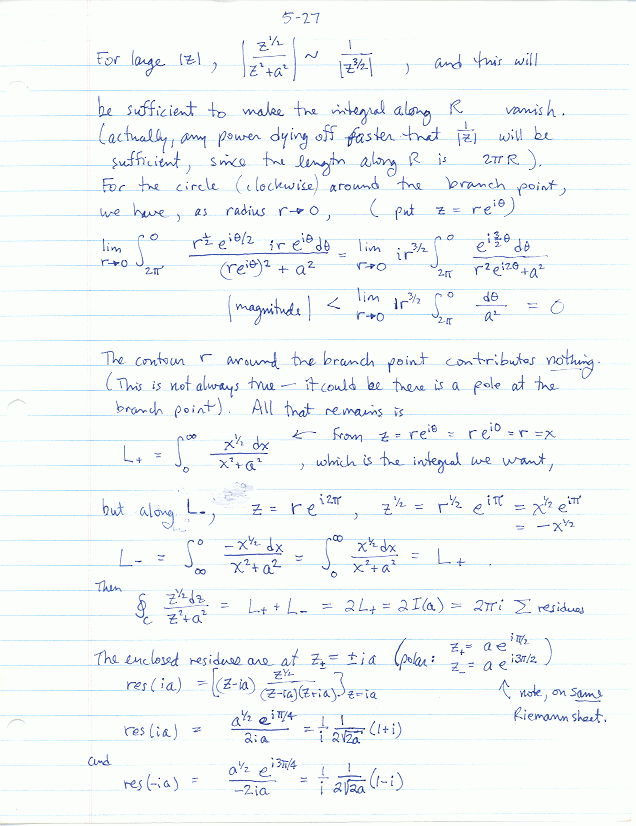 5-27
For large |z| , |z^{1/2}/(z²+a²)| ~ 1/|z^{3/2}| , and this will
be sufficient to make the integral along R vanish.
(actually, any power dying off faster that 1/|z| will be
sufficient, since the length along R is 2πR ).
For the circle (clockwise) around the branch point,
we have, as radius r→0, ( put z = re^{iθ})
lim_{r→0} ∫_{2π}^{0} r^{1/2} e^{iθ/2} ir e^{iθ} dθ / ((re^{iθ})² + a²) = lim_{r→0} ir^{3/2} ∫_{2π}^{0} e^{i(3/2)θ} dθ / (r² e^{i2θ} + a²)
|magnitude| < lim_{r→0} |r^{3/2} ∫_{2π}^{0} dθ/a² = 0
The contour r around the branch point contributes nothing.
(This is not always true — it could be there is a pole at the
branch point). All that remains is
L₊ = ∫_0^∞ x^{1/2} dx / (x²+a²) ← From z = re^{iθ} = re^{i0} = r = x
, which is the integral we want,
but along L₋, z = re^{i2π} , z^{1/2} = r^{1/2} e^{iπ} = x^{1/2} e^{iπ}
= -x^{1/2}
L₋ = ∫_∞^0 -x^{1/2} dx / (x²+a²) = ∫_0^∞ x^{1/2} dx / (x²+a²) = L₊ .
Then
∮_C z^{1/2} dz / (z²+a²) = L₊ + L₋ = 2L₊ = 2I(a) = 2πi Σ residues
The enclosed residues are at z± = ±ia (polar: z₊ = ae^{iπ/2}
z₋ = ae^{i3π/2})
res(ia) = [(z-ia) z^{1/2} / ((z-ia)(z+ia))]_{z=ia}
↑ note, on same
Riemann sheet.
res(ia) = a^{1/2} e^{iπ/4} / 2ia = 1/i 1/(2√2a) (1+i)
and
res(-ia) = a^{1/2} e^{i3π/4} / -2ia = 1/i 1/(2√2a) (1-i)